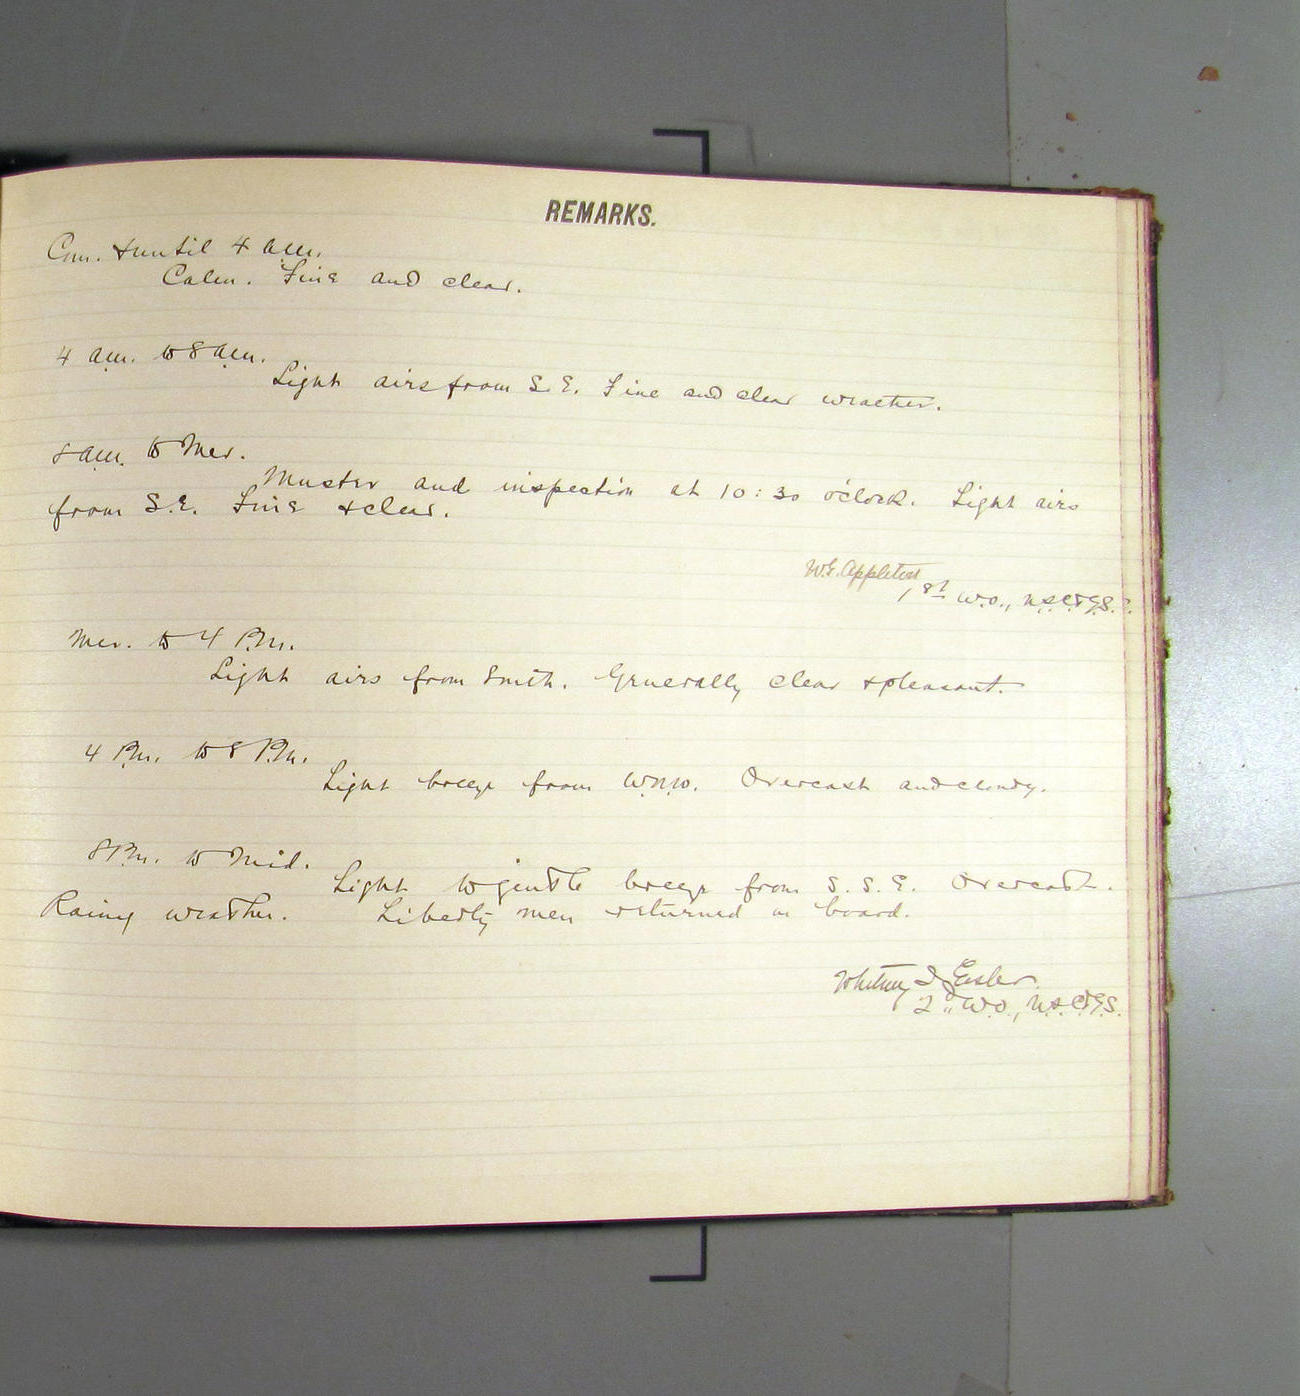 REMARKS.
Com. & until 4 a.m.
Calm. Fine and clear.
4 a.m. to 8 a.m.
Light airs from S.E. Fine and clear weather.
8 a.m. to Mer.
Muster and inspection at 10:30 o'clock. Light airs
from S.E. Fine & clear.
W.E. Appleton
1st W.O., U.S.C.&G.S.
Mer. to 4 P.m.
Light airs from South. Generally clear & pleasant.
4 P.m. to 8 P.m.
Light breeze from W.N.W. Overcast and cloudy.
8 P.m. to Mid.
Light to gentle breeze from S.S.E. Overcast.
Rainy weather. Liberty men returned on board.
Whitney I. Eisler
2nd W.O., U.S.C.&G.S.